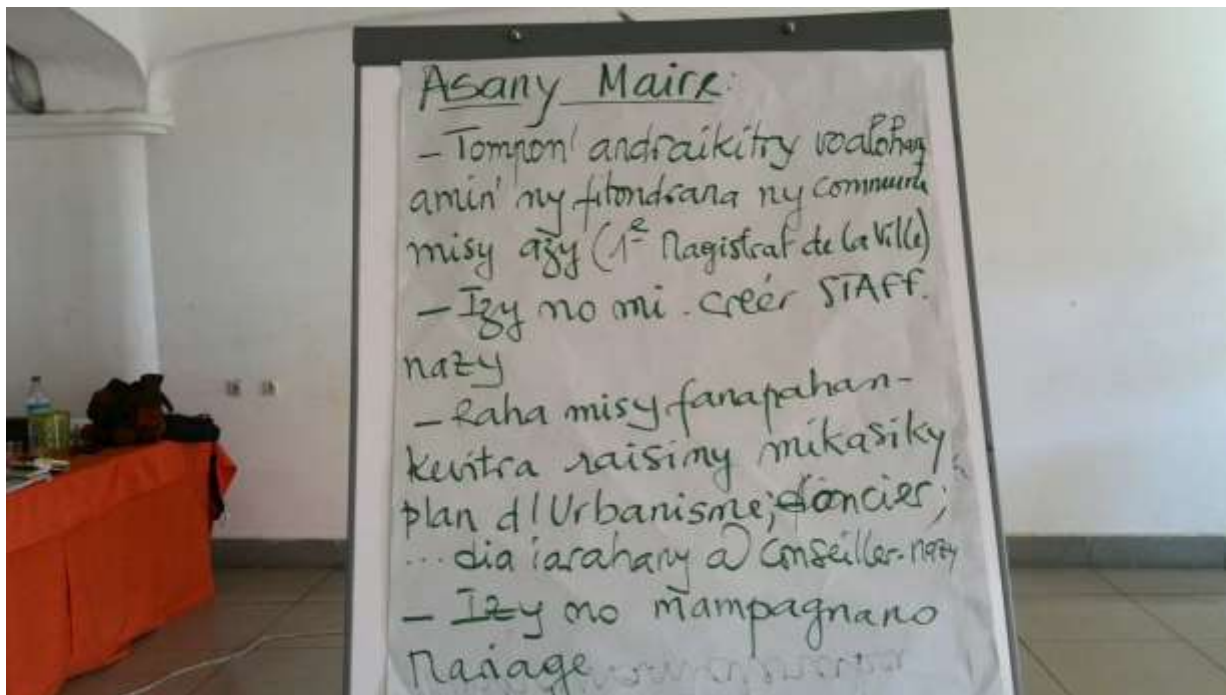 Asany Maire:
- Tompon' andraikitry voalohany
amin' ny fitondrana ny commune
misy azy (1e Magistrat de la Ville)
- Izy no mi. créér STAFF.
nazy
- Raha misy fanapahan-
kevitra raisiny mikasiky
plan d'Urbanisme; foncier;
... dia iarahany @ Conseiller-nazy
- Izy no mampagnano
Mariage